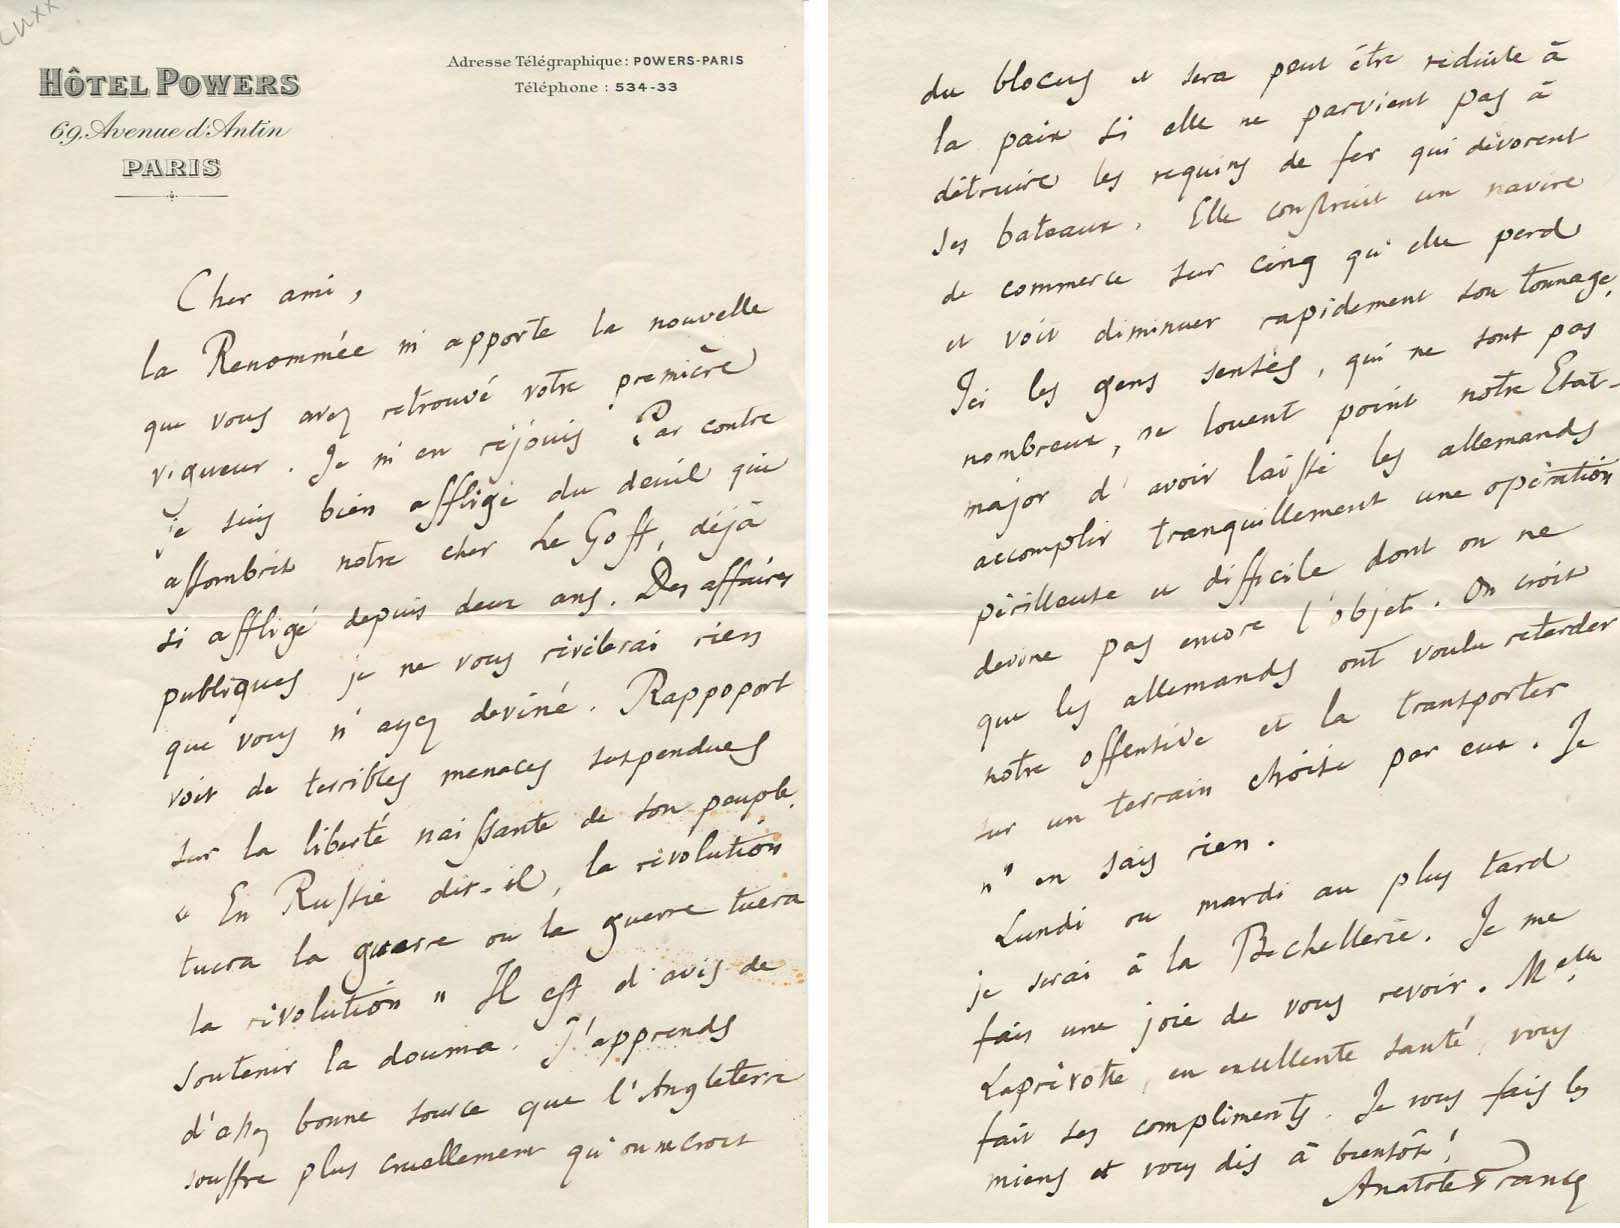 HÔTEL POWERS
69. Avenue d'Antin
PARIS
Adresse Télégraphique: POWERS-PARIS
Téléphone : 534-33
Cher ami,
la Renommée m'apporte la nouvelle
que vous avez retrouvé votre première
vigueur. Je m'en réjouis. Par contre
je suis bien affligé du deuil qui
assombrit notre cher Le Goff, déjà
si affligé depuis deux ans. Des affaires
publiques je ne vous révélerai rien
que vous n'ayez deviné. Rappoport
voit de terribles menaces suspendues
sur la liberté naissante de son peuple.
" En Russie dit-il, la révolution
tuera la guerre ou la guerre tuera
la révolution " Il est d'avis de
soutenir la douma. J'apprends
d'assez bonne source que l'Angleterre
souffre plus cruellement qu'on ne croit
du blocus et sera peut être réduite à
la paix si elle ne parvient pas à
détruire les requins de fer qui dévorent
ses bateaux. Elle construit un navire
de commerce sur cinq qu'elle perd
et voit diminuer rapidement son tonnage.
Ici les gens sensés, qui ne sont pas
nombreux, ne louent point notre Etat-
major d'avoir laissé les allemands
accomplir tranquillement une opération
périlleuse et difficile dont on ne
devine pas encore l'objet. On croit
que les allemands ont voulu retarder
notre offensive et la transporter
sur un terrain choisi par eux. Je
n'en sais rien.
Lundi ou mardi au plus tard
je serai à la Bechellerie. Je me
fais une joie de vous revoir. Melle
Laprévotte, en excellente santé, vous
fait ses compliments. Je vous fais les
miens et vous dis à bientôt!
Anatole France